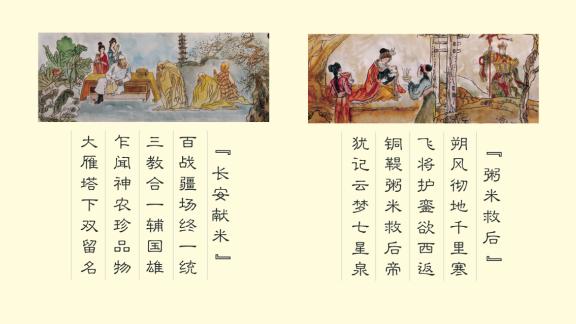 『粥米救后』
朔风彻地千里寒
飞将护銮欲西返
铜鞮粥米救后帝
犹记云梦七星泉
『长安献米』
百战疆场终一统
三教合一辅国雄
乍闻神农珍品物
大雁塔下双留名